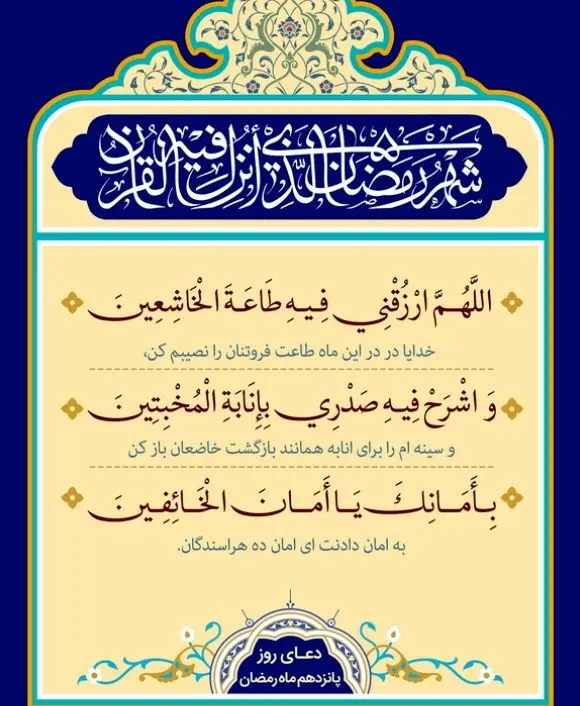 شَهْرُ رَمَضَانَ الَّذِي أُنْزِلَ فِيهِ الْقُرْآنُ
اللَّهُمَّ ارْزُقْنِي فِيهِ طَاعَةَ الْخَاشِعِينَ
خدایا در در این ماه طاعت فروتنان را نصیبم کن،
وَ اشْرَحْ فِيهِ صَدْرِي بِإِنَابَةِ الْمُخْبِتِينَ
و سینه ام را برای انابه همانند بازگشت خاضعان باز کن
بِأَمَانِكَ يَا أَمَانَ الْخَائِفِينَ
به امان دادنت ای امان ده هراسندگان.
دعای روز
پانزدهم ماه رمضان